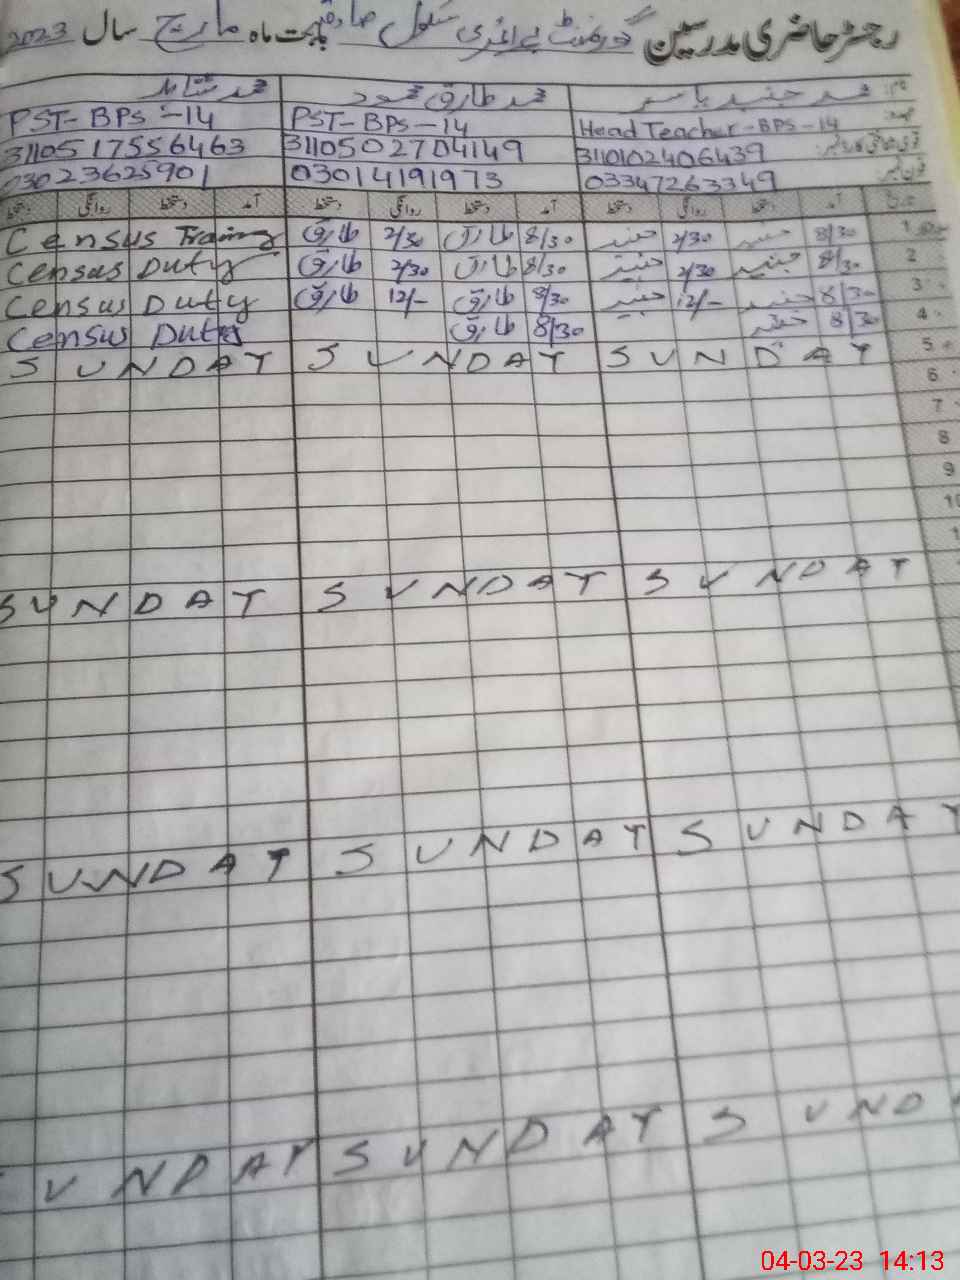 رجسٹر حاضری مدرسین گورنمنٹ پرائمری سکول بابت ماہ مارچ سال 2023
نام محمد جنید یاسر محمد طارق محمود محمد شاہد
عہدہ Head Teacher-BPS-14 PST-BPS-14 PST-BPS-14
3110102406439 3110502704149 3110517556463
فون نمبر 03347263349 03014191973 03023625901
آمد دستخط روانگی دستخط آمد دستخط روانگی دستخط آمد دستخط روانگی دستخط
1 8/30 جنید 2/30 جنید 8/30 طارق 2/30 طارق Census Training
2 8/30 جنید 2/30 جنید 8/30 طارق 2/30 طارق Census Duty
3 8/30 جنید 12/- جنید 8/30 طارق 12/- طارق Census Duty
4 8/30 جنید 8/30 طارق Census Duty
5 SUNDAY SUNDAY SUNDAY
6
7
8
9
10
SUNDAY SUNDAY SUNDAY
SUNDAY SUNDAY SUNDAY
UNDAY SUNDAY SUND
04-03-23 14:13